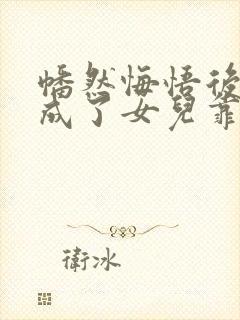 幡然悔悟後
成了女兒靠
衛冰